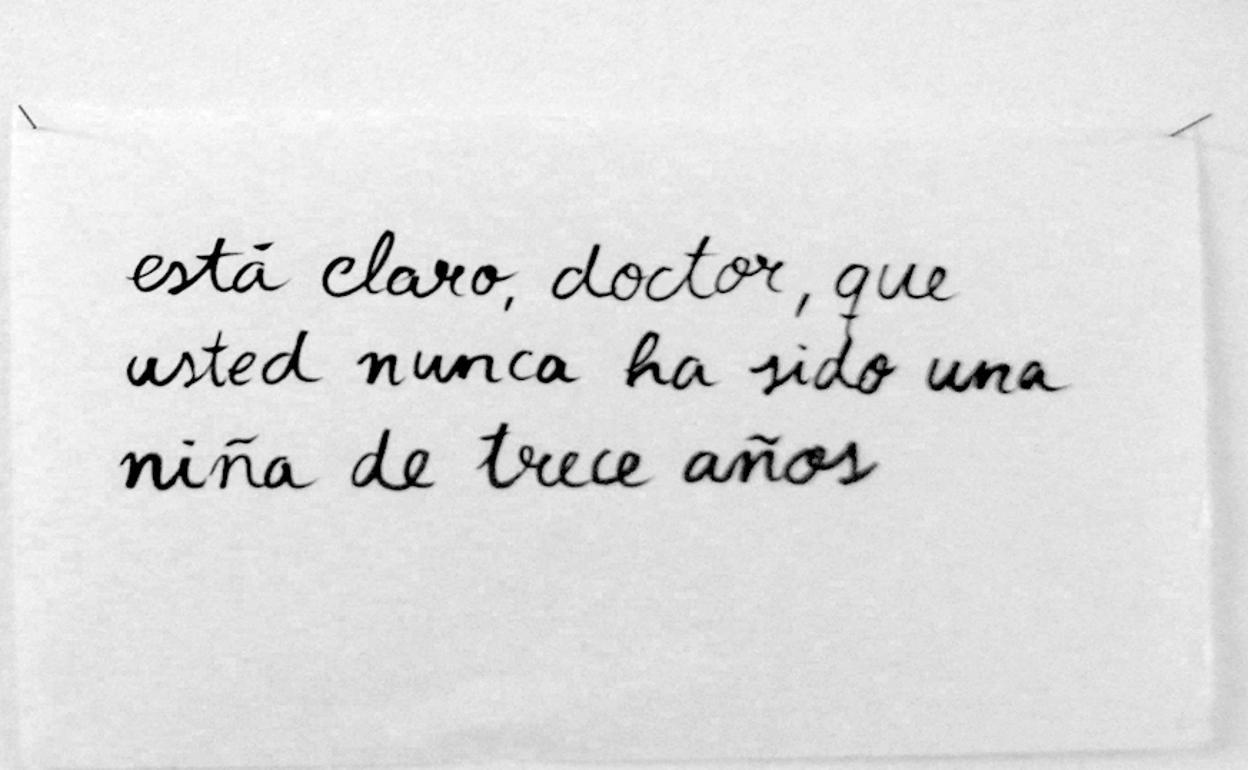 está claro, doctor, que
usted nunca ha sido una
niña de trece años